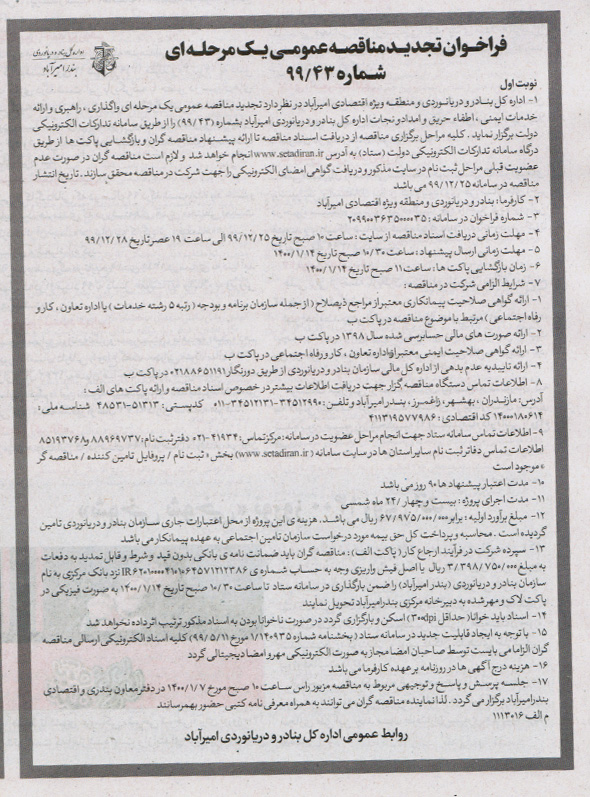 اداره کل بنادر و دریانوردی
بندر امیرآباد
فراخوان تجدید مناقصه عمومی یک مرحله ای
شماره ۹۹/۴۳
نوبت اول
۱- اداره کل بنادر و دریانوردی و منطقه ویژه اقتصادی امیرآباد در نظر دارد تجدید مناقصه عمومی یک مرحله ای واگذاری ، راهبری و ارائه
خدمات ایمنی ، اطفاء حریق و امداد و نجات اداره کل بنادر و دریانوردی امیرآباد بشماره (۹۹/۴۳) را از طریق سامانه تدارکات الکترونیکی
دولت برگزار نماید . کلیه مراحل برگزاری مناقصه از دریافت اسناد مناقصه تا ارائه پیشنهاد مناقصه گران و بازگشایی پاکت ها از طریق
درگاه سامانه تدارکات الکترونیکی دولت (ستاد) به آدرس www.setadiran.ir انجام خواهد شد و لازم است مناقصه گران در صورت عدم
عضویت قبلی مراحل ثبت نام در سایت مذکور و دریافت گواهی امضای الکترونیکی را جهت شرکت در مناقصه محقق سازند . تاریخ انتشار
مناقصه در سامانه ۹۹/۱۲/۲۵ می باشد
۲- کارفرما: بنادر و دریانوردی و منطقه ویژه اقتصادی امیرآباد
۳- شماره فراخوان در سامانه : ۲۰۹۹۰۰۳۶۳۵۰۰۰۰۳۵
۴- مهلت زمانی دریافت اسناد مناقصه از سایت : ساعت ۱۰ صبح تاریخ ۹۹/۱۲/۲۵ الی ساعت ۱۹ عصر تاریخ ۹۹/۱۲/۲۸
۵- مهلت زمانی ارسال پیشنهاد : ساعت ۱۰/۳۰ صبح تاریخ ۱۴۰۰/۱/۱۴
۶- زمان بازگشایی پاکت ها : ساعت ۱۱ صبح تاریخ ۱۴۰۰/۱/۱۴
۷- شرایط الزامی شرکت در مناقصه :
۱- ارائه گواهی صلاحیت پیمانکاری معتبر از مراجع ذیصلاح (از جمله سازمان برنامه و بودجه (رتبه ۵ رشته خدمات ) یا اداره تعاون ، کار و
رفاه اجتماعی ) مرتبط با موضوع مناقصه در پاکت ب
۲- ارائه صورت های مالی حسابرسی شده سال ۱۳۹۸ در پاکت ب
۳- ارائه گواهی صلاحیت ایمنی معتبر از اداره تعاون ، کار و رفاه اجتماعی در پاکت ب
۴- ارائه تاییدیه عدم بدهی از اداره کل مالی سازمان بنادر و دریانوردی از طریق دورنگار ۰۲۱۸۸۶۵۱۱۹۱ در پاکت ب
۸- اطلاعات تماس دستگاه مناقصه گزار جهت دریافت اطلاعات بیشتر در خصوص اسناد مناقصه و ارائه پاکت های الف :
آدرس: مازندران ، بهشهر، زاغمرز، بندر امیرآباد و تلفن: ۳۴۵۱۲۹۹۰-۳۴۵۱۲۱۳۱-۰۱۱ کدپستی: ۵۱۳۱۳-۴۸۵۳۱ شناسه ملی :
۱۴۰۰۰۱۸۰۶۱۴ کد اقتصادی : ۴۱۱۳۱۹۵۷۷۹۸۶
۹- اطلاعات تماس سامانه ستاد جهت انجام مراحل عضویت در سامانه: مرکز تماس: ۴۱۹۳۴-۰۲۱ دفتر ثبت نام : ۸۸۹۶۹۷۳۷ و ۸۵۱۹۳۷۶۸
اطلاعات تماس دفاتر ثبت نام سایر استان ها در سایت سامانه (www.setadiran.ir) بخش « ثبت نام / پروفایل تامین کننده / مناقصه گر
» موجود است
۱۰- مدت اعتبار پیشنهاد ها ۹۰ روز می باشد
۱۱- مدت اجرای پروژه : بیست و چهار /۲۴ ماه شمسی
۱۲- مبلغ برآورد اولیه : برابر ۶۷/۹۷۵/۰۰۰/۰۰۰ ریال می باشد. هزینه ی این پروژه از محل اعتبارات جاری سازمان بنادر و دریانوردی تامین
گردیده است . محاسبه و پرداخت کل حق بیمه مورد درخواست سازمان تامین اجتماعی به عهده پیمانکار می باشد
۱۳- سپرده شرکت در فرآیند ارجاع کار (پاکت الف) : مناقصه گران باید ضمانت نامه ی بانکی بدون قید و شرط و قابل تمدید به دفعات
به مبلغ ۳/۳۹۸/۷۵۰/۰۰۰ ریال یا اصل فیش واریزی وجه به حساب شماره ی IR۶۲۰۱۰۰۰۰۴۱۰۱۰۶۴۵۷۱۲۱۲۳۸۶ نزد بانک مرکزی به نام
سازمان بنادر و دریانوردی (بندر امیرآباد) را ضمن بارگذاری در سامانه ستاد تا ساعت ۱۰/۳۰ صبح تاریخ ۱۴۰۰/۱/۱۴ به صورت فیزیکی در
پاکت لاک و مهر شده به دبیرخانه مرکزی بندر امیرآباد تحویل نمایند
۱۴- اسناد باید خوانا (حداقل ۳۰۰dpi) اسکن و بارگزاری گردد در صورت ناخوانا بودن به اسناد مذکور ترتیب اثر داده نخواهد شد
۱۵- با توجه به ایجاد قابلیت جدید در سامانه ستاد ( بخشنامه شماره ۱/۱۴۰۹۳۵ مورخ ۹۹/۵/۱۱) کلیه اسناد الکترونیکی ارسالی مناقصه
گران الزاما می بایست توسط صاحبان امضا مجاز به صورت الکترونیکی مهر و امضا دیجیتالی گردد
۱۶- هزینه درج آگهی ها در روزنامه بر عهده کارفرما می باشد
۱۷- جلسه پرسش و پاسخ و توجیهی مربوط به مناقصه مزبور راس ساعت ۱۰ صبح مورخ ۱۴۰۰/۱/۷ در دفتر معاون بندری و اقتصادی
بندر امیرآباد برگزار می گردد . لذا نماینده مناقصه گران می توانند به همراه معرفی نامه کتبی حضور بهم رسانند
م الف ۱۱۱۳۰۱۶
روابط عمومی اداره کل بنادر و دریانوردی امیرآباد